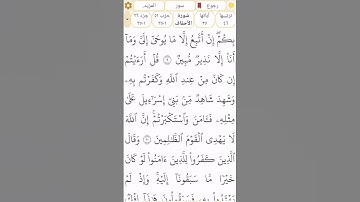 رجوع سور المزيد..
ترتيبها آياتها سُورَةُ حزب ٥١ جزء ٢٦
٤٦ ٣٥ الأحقاف
بِكُمْ ۖ إِنْ أَتَّبِعُ إِلَّا مَا يُوحَىٰٓ إِلَىَّ وَمَآ
أَنَا۠ إِلَّا نَذِيرٌ مُّبِينٌ ٩ قُلْ أَرَءَيْتُمْ
إِن كَانَ مِنْ عِندِ ٱللَّهِ وَكَفَرْتُم بِهِۦ
وَشَهِدَ شَاهِدٌ مِّنۢ بَنِىٓ إِسْرَٰٓءِيلَ عَلَىٰ
مِثْلِهِۦ فَـَٔامَنَ وَٱسْتَكْبَرْتُمْ ۖ إِنَّ ٱللَّهَ
لَا يَهْدِى ٱلْقَوْمَ ٱلظَّٰلِمِينَ ١٠ وَقَالَ
ٱلَّذِينَ كَفَرُوا۟ لِلَّذِينَ ءَامَنُوا۟ لَوْ كَانَ
خَيْرًا مَّا سَبَقُونَآ إِلَيْهِ ۚ وَإِذْ لَمْ
يَهْتَدُوا۟ بِهِۦ فَسَيَقُولُونَ هَٰذَآ إِفْكٌ